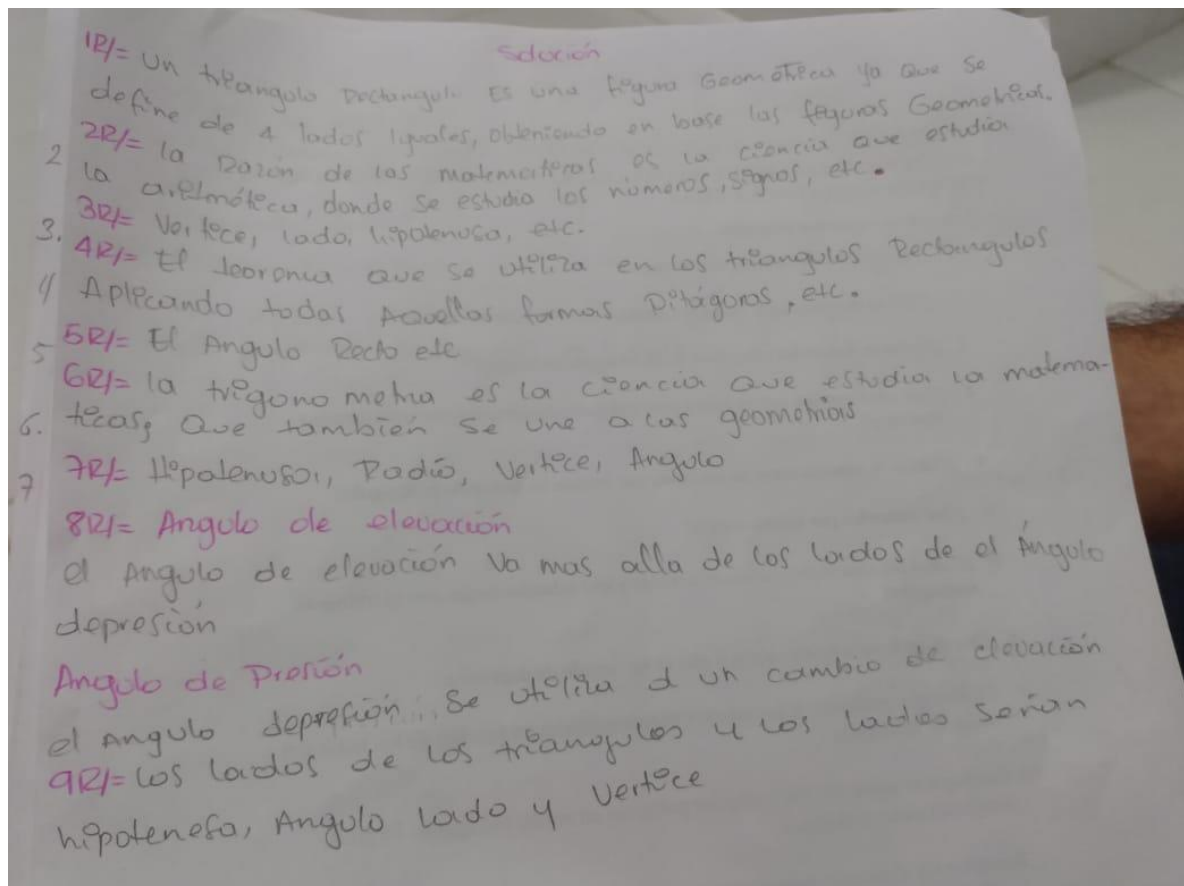 Solución
1R/= Un triangulo Rectangulo Es una figura Geométrica ya que se
define de 4 lados iguales, obteniendo en base las figuras Geometricas.
2R/= la Razón de las matematicas es la ciencia que estudia
2 la aritmética, donde se estudia los números, signos, etc.
3R/= Vertice, lado, hipotenusa, etc.
3. 4R/= El teorema que se utiliza en los triangulos Rectangulos
4 Aplicando todas Aquellas formas Pitágoras, etc.
5R/= El Angulo Recto etc
5 6R/= la trigonometria es la ciencia que estudia la matema-
6. ticas, que también se une a las geometrias
7R/= Hipotenusa, Radio, Vertice, Angulo
7
8R/= Angulo de elevación
el Angulo de elevación va mas alla de los lados de el Ángulo
depresión
Angulo de Presión
el Angulo depresión, se utiliza d un cambio de elevación
9R/= los lados de los triangulos y los lados serian
hipotenesa, Angulo lado y vertice